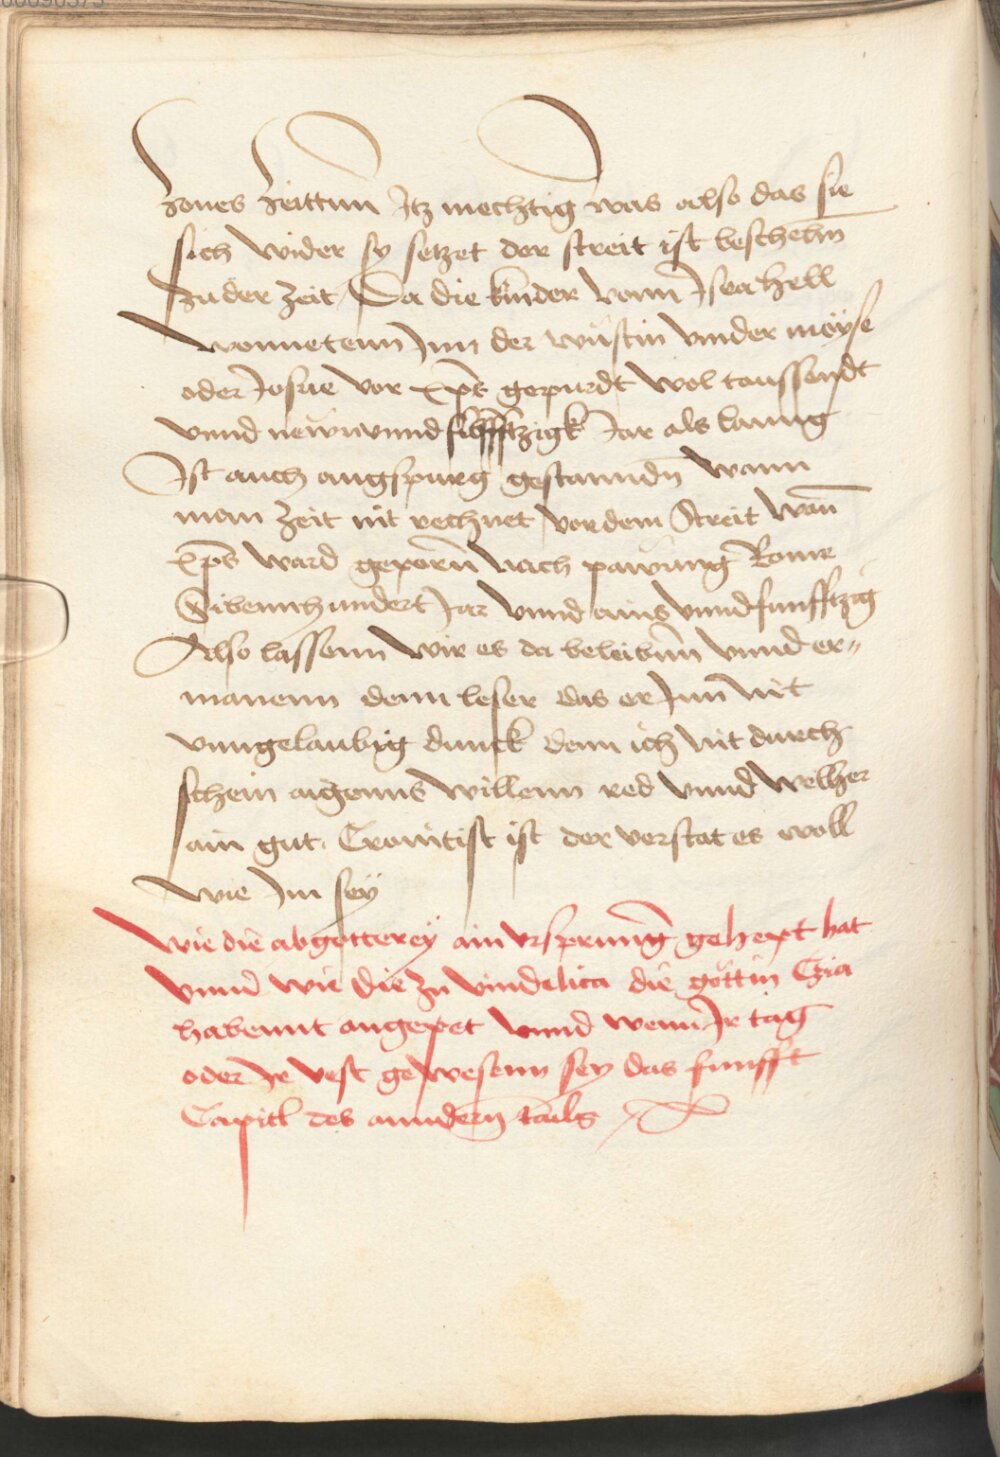 zones zeittnn Itz mechtig was also das sie
sich wider sy setzet der streit ist beschehn̄
zu der zeit Da die kinder vonn Iserahell
wonnetenn Inn der wüstin vnder moyse
oder Josue vor xp̄s gepurdt wol taussendt
vnnd newnvnnd fünfftzigk Jar als lanng
Ist auch augspurg gestanndn̄ wann
man zeit nit rechnet vor dem Streit wan̄
xp̄s ward geporn̄ nach pawung Rome
Sibennhundert Jar vnnd ains vnnd funfftzig
Also lassenn wir es da beleibnn̄ vnnd er〃
manenn denn leser das er Inn nit
vnngelaubig dunck denn ich nit durch
schein aigenns willenn red vnnd welher
ain gut Cronitist ist der verstat es woll
wie Im sey
Wie die abgötterey ain vrsprunng gehept hat
vnnd wie die zu vindelica die göttin Czia
habennt angepet vnnd wenn Ir tag
oder Ir vest gewesenn sey das funfft
Capitl des anndern̄ tails